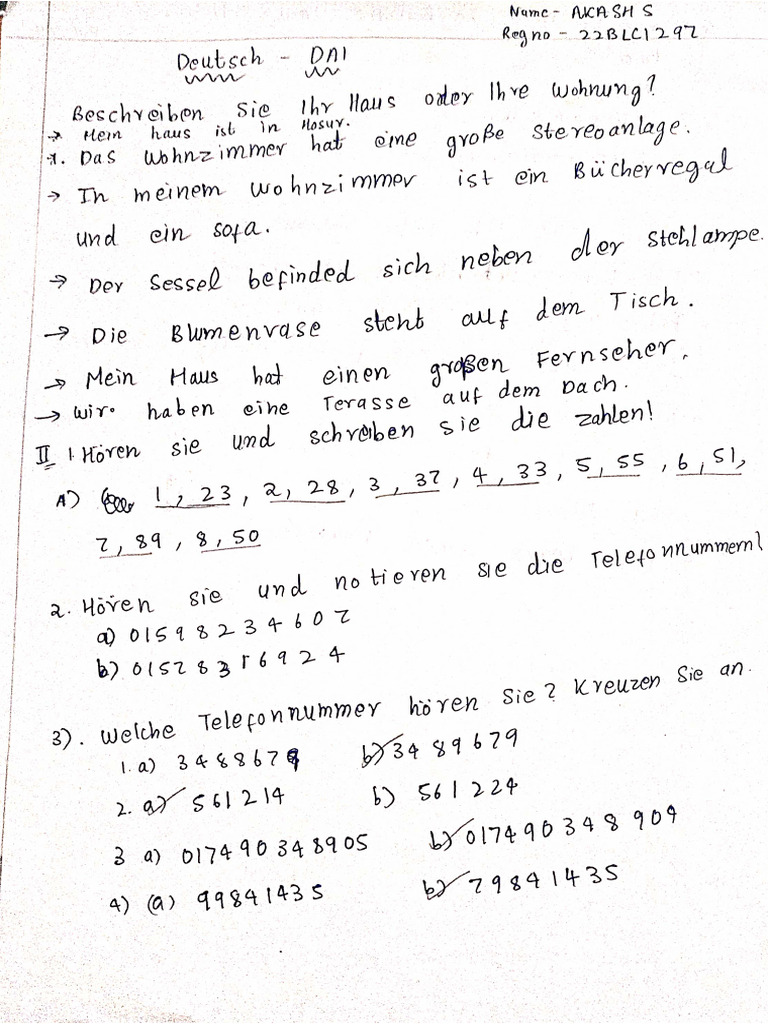 Name - AKASH S
Reg no - 22BLC1297
Deutsch - DA1
Beschreiben Sie Ihr Haus oder Ihre Wohnung?
→ Mein haus ist in Hosur.
→. Das Wohnzimmer hat eine große Stereoanlage.
→ In meinem Wohnzimmer ist ein Bücherregal
und ein sofa.
→ Der Sessel befinded sich neben der Stehlampe.
→ Die Blumenvase steht auf dem Tisch.
→ Mein Haus hat einen großen Fernseher.
→ Wir haben eine Terasse auf dem Dach.
II 1. Hören sie und schreiben sie die zahlen!
A) 1, 23, 2, 28, 3, 37, 4, 33, 5, 55, 6, 51,
7, 89, 8, 50
2. Hören sie und notieren sie die Telefonnummern!
a) 01598234607
b) 01578316924
3). Welche Telefonnummer hören Sie? Kreuzen Sie an.
1. a) 3488679 b) 3489679
2. a) 561214 b) 561224
3 a) 017490348905 b) 017490348909
4) (a) 99841435 b) 79841435